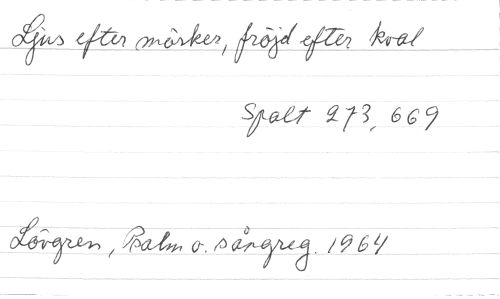 Ljus efter mörker, fröjd efter kval
Spalt 273, 669
Lövgren, Psalm o. sångreg. 1964